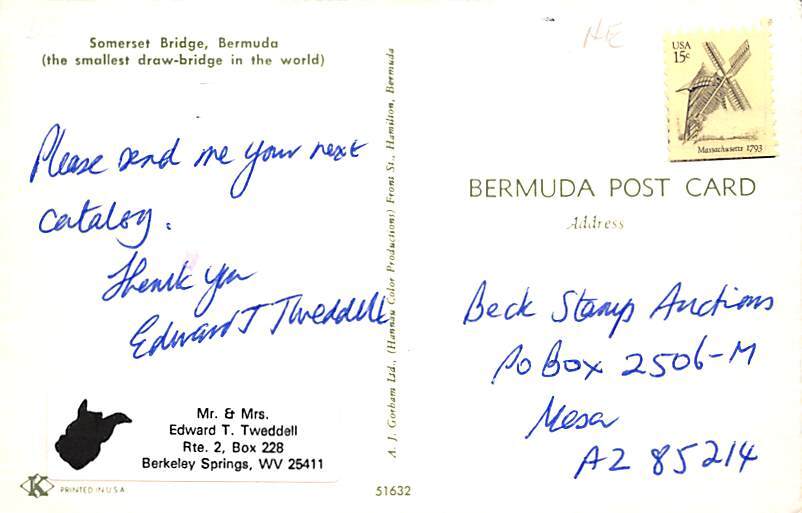 Somerset Bridge, Bermuda
(the smallest draw-bridge in the world)
Please send me your next
catalog.
Thank you
Edward T Tweddell
Mr. & Mrs.
Edward T. Tweddell
Rte. 2, Box 228
Berkeley Springs, WV 25411
K
PRINTED IN U.S.A.
51632
A. J. Gorham Ltd., (Hannau Color Productions) Front St., Hamilton, Bermuda
HE
USA
15c
Massachusetts 1793
BERMUDA POST CARD
Address
Beck Stamp Auctions
Po Box 2506-M
Mesa
AZ 85214